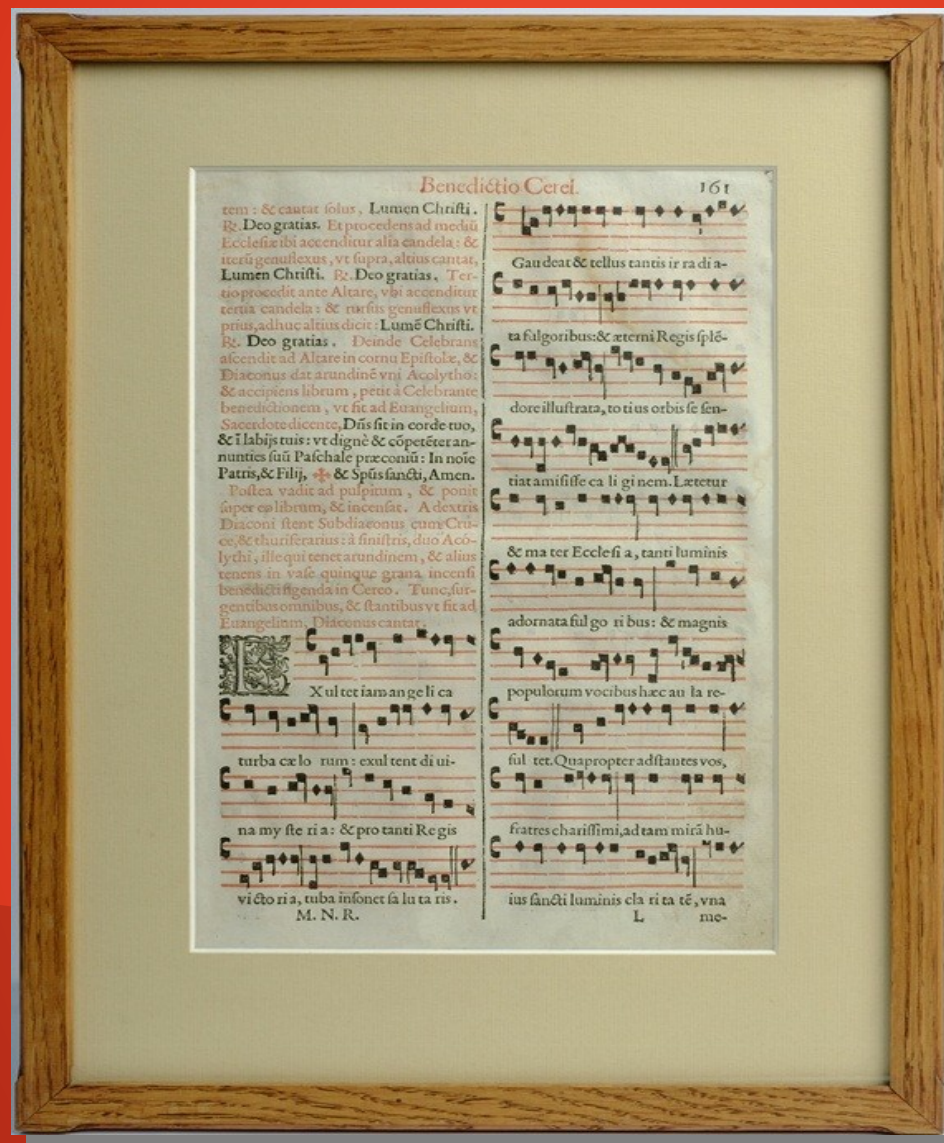 Benedictio Cerei. 161
tem : & cantat solus, Lumen Christi.
℟. Deo gratias. Et procedens ad mediũ
Ecclesiæ ibi accenditur alia candela : &
iterũ genuflexus, vt supra, altius cantat,
Lumen Christi. ℟. Deo gratias. Ter-
tio procedit ante Altare, vbi accenditur
tertia candela : & rursus genuflexus vt
prius, adhuc altius dicit : Lumẽ Christi.
℟. Deo gratias. Deinde Celebrans
ascendit ad Altare in cornu Epistolæ, &
Diaconus dat arundinẽ vni Acolytho :
& accipiens librum, petit à Celebrante
benedictionem, vt fit ad Euangelium,
Sacerdote dicente, Dñs sit in corde tuo,
& ĩ labijs tuis : vt dignè & cõpetẽter an-
nunties suũ Paschale præconiũ : In noĩe
Patris, & Filij, ✠ & Spũs sancti, Amen.
Postea vadit ad pulpitum, & ponit
super eo librum, & incensat. A dextris
Diaconi stent Subdiaconus cum Cru-
ce, & thuriferarius : à sinistris, duo Aco-
lythi, ille qui tenet arundinem, & alius
tenens in vase quinque grana incensi
benedicti figenda in Cereo. Tunc, sur-
gentibus omnibus, & stantibus vt fit ad
Euangelium, Diaconus cantat.
EXul tet iam an ge li ca
turba cæ lo rum : exul tent di ui-
na my ste ri a : & pro tanti Re gis
vi cto ri a, tuba insonet sa lu ta ris.
M. N. R.
Gau deat & tellus tantis ir ra di a-
ta fulgoribus : & æterni Regis splẽ-
dore illustrata, to ti us orbis se sen-
tiat amisisse ca li gi nem. Lætetur
& ma ter Ecclesi a, tanti luminis
adornata ful go ri bus : & magnis
populorum vocibus hæc au la re-
sul tet. Quapropter adstantes vos,
fratres charissimi, ad tam mirã hu-
ius sancti luminis cla ri ta tẽ, vna
L me-